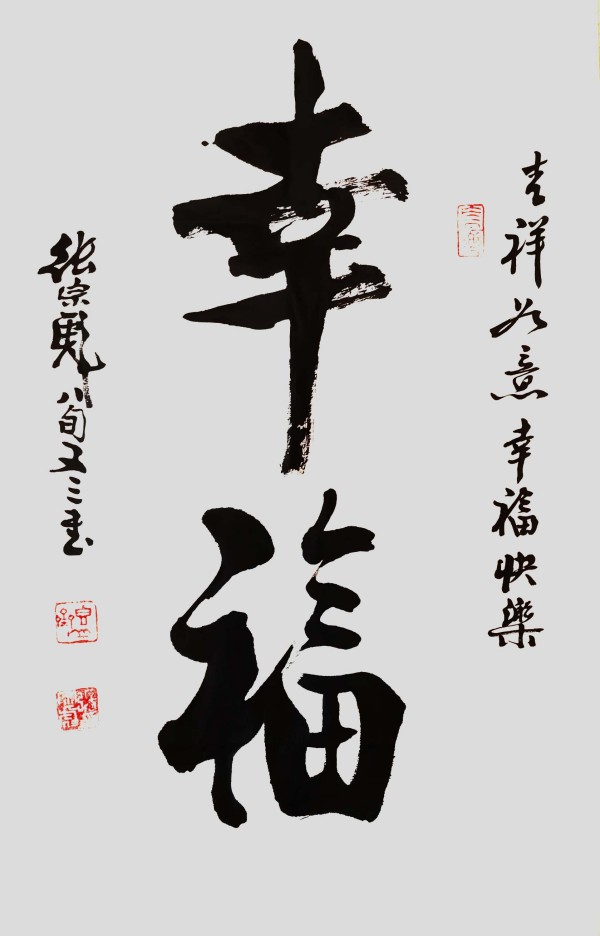 吉祥如意幸福快樂
幸福
張宗彪八旬又三書